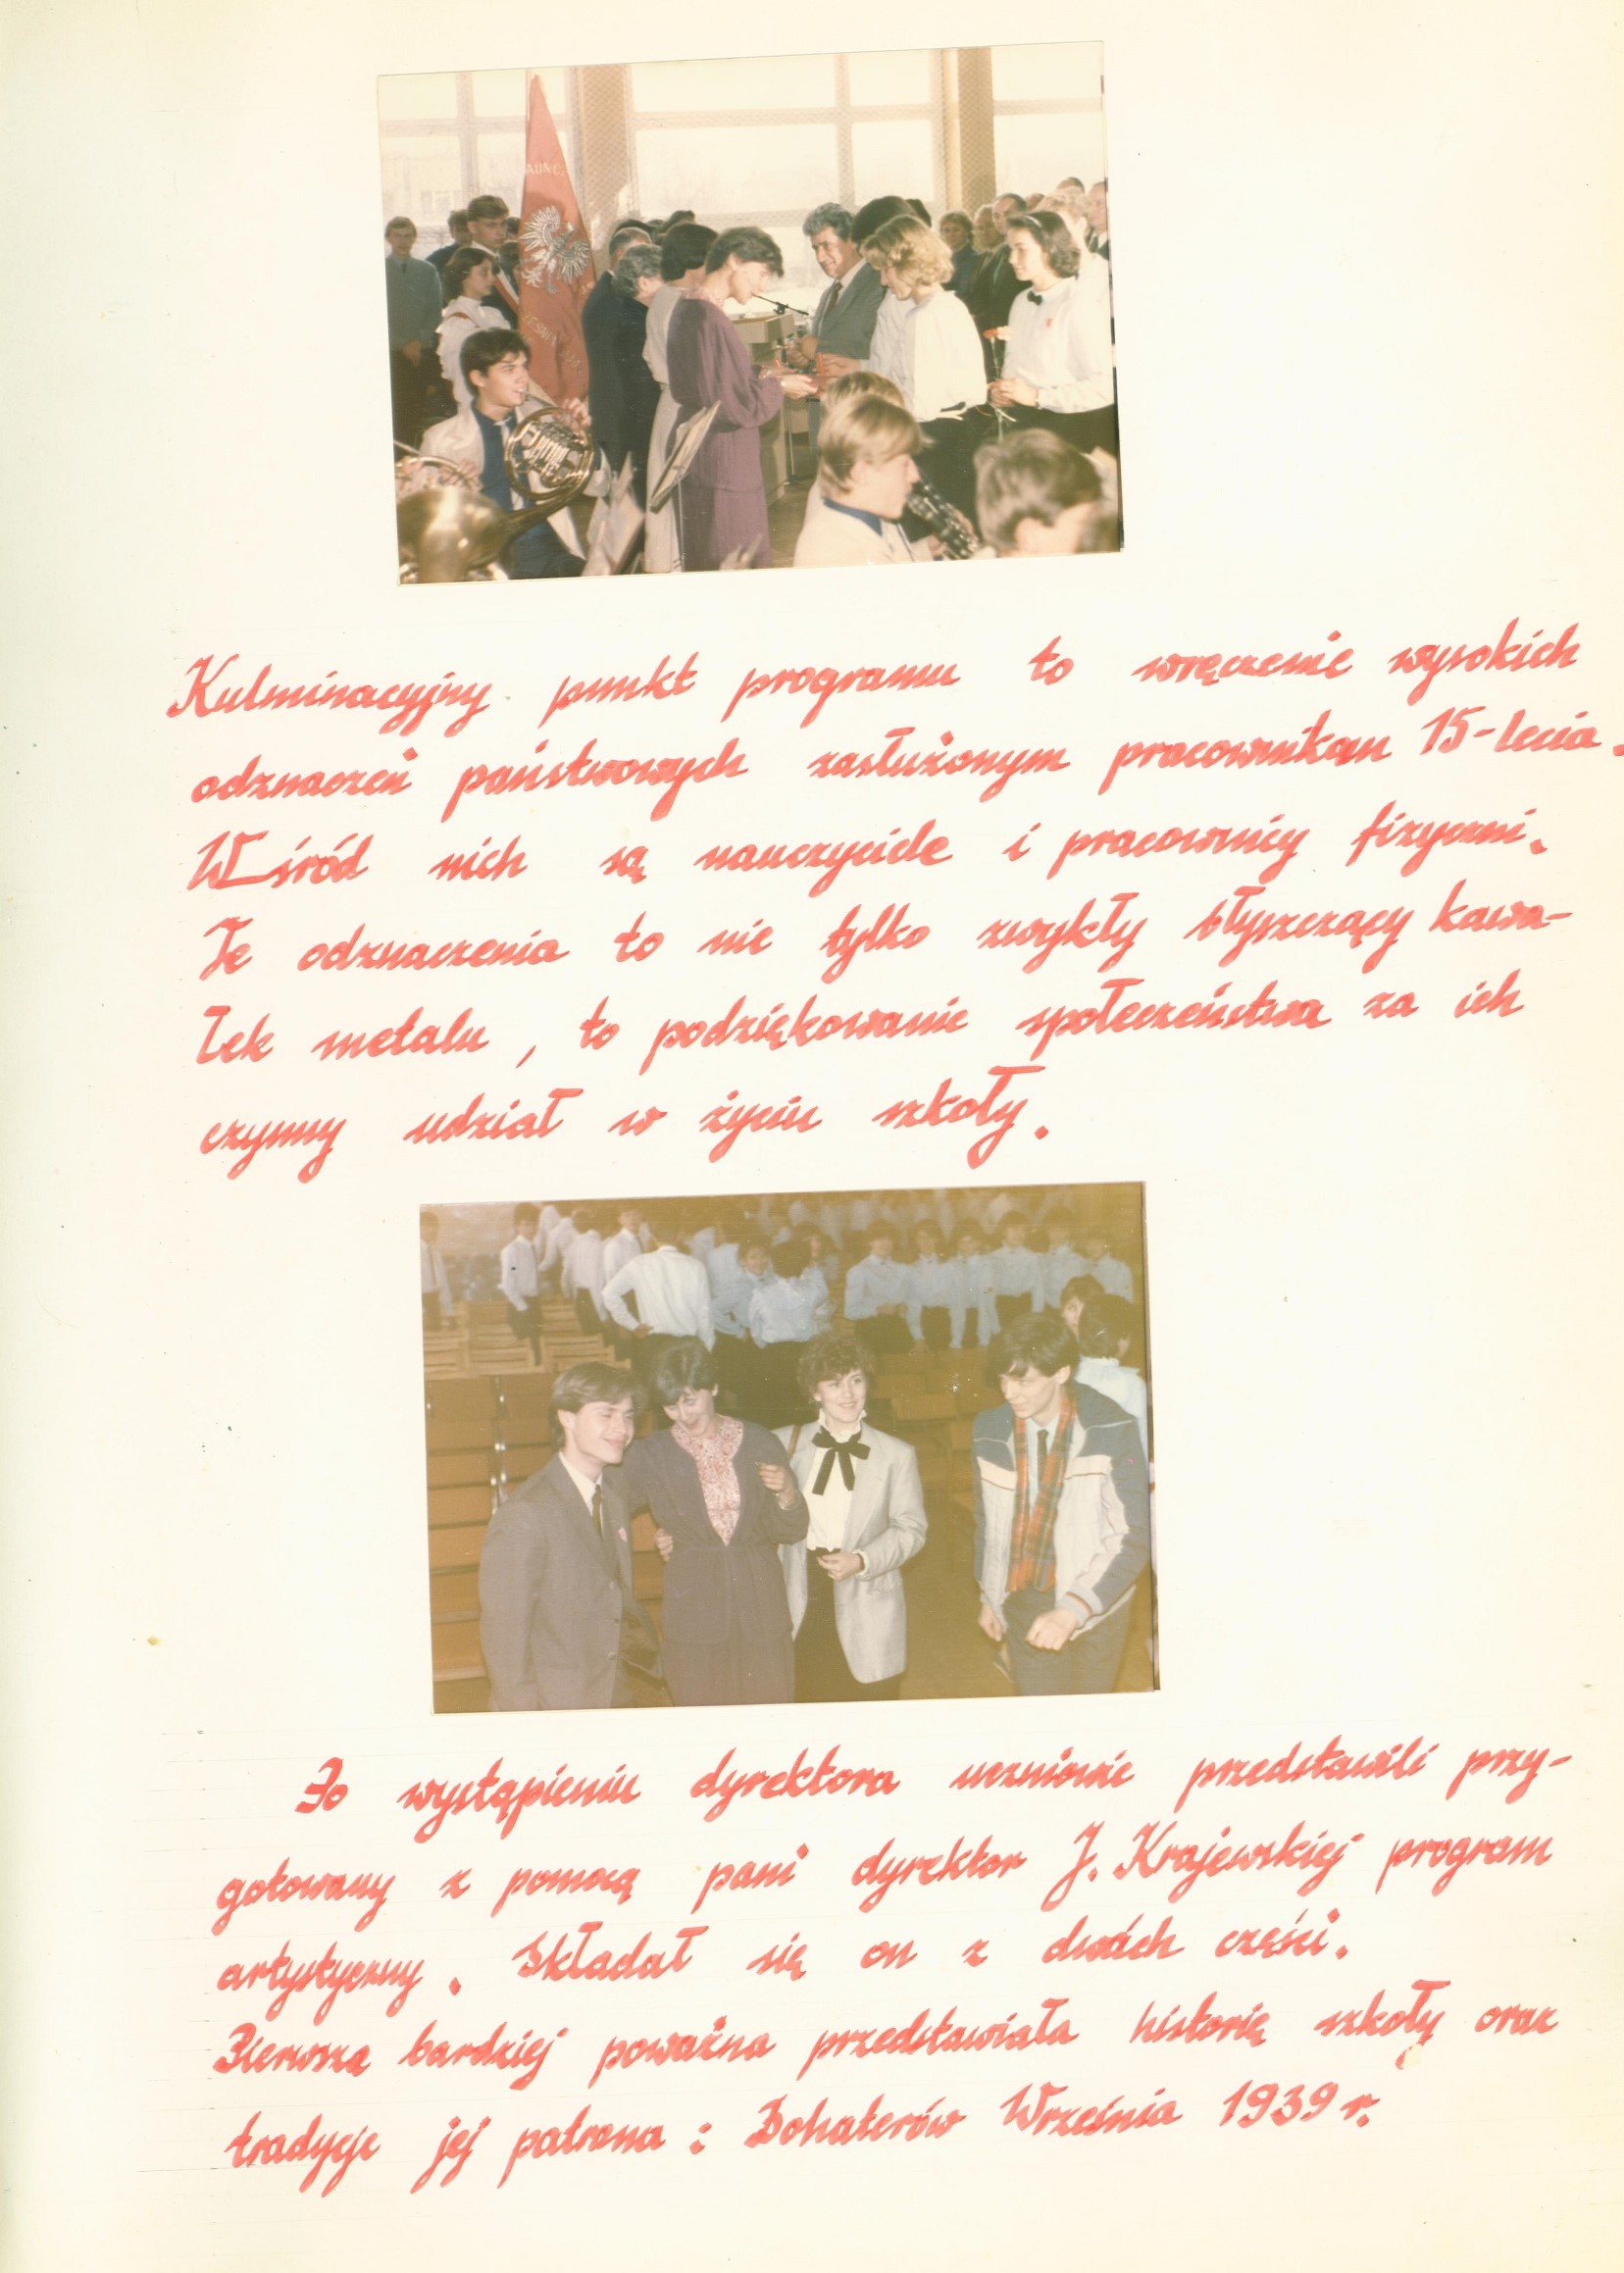 Kulminacyjny punkt programu to wręczenie wysokich
odznaczeń państwowych zasłużonym pracownikom 15-lecia.
Wśród nich są nauczyciele i pracownicy fizyczni.
Te odznaczenia to nie tylko zwykły błyszczący kawa-
łek metalu, to podziękowanie społeczeństwa za ich
czynny udział w życiu szkoły.
Po wystąpieniu dyrektora uczniowie przedstawili przy-
gotowany z pomocą pani dyrektor J. Krajewskiej program
artystyczny. Składał się on z dwóch części.
Pierwsza bardziej poważna przedstawiała historię szkoły oraz
tradycje jej patrona: Bohaterów Września 1939 r.